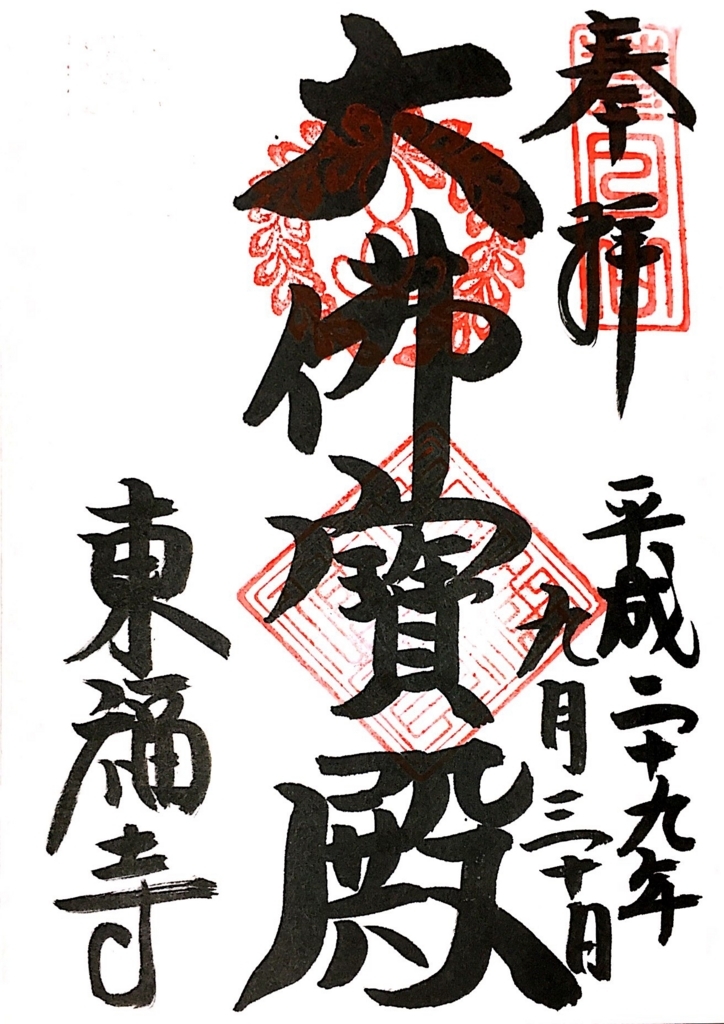 奉拝
平成二十九年
九月三十日
大佛寶殿
東福寺